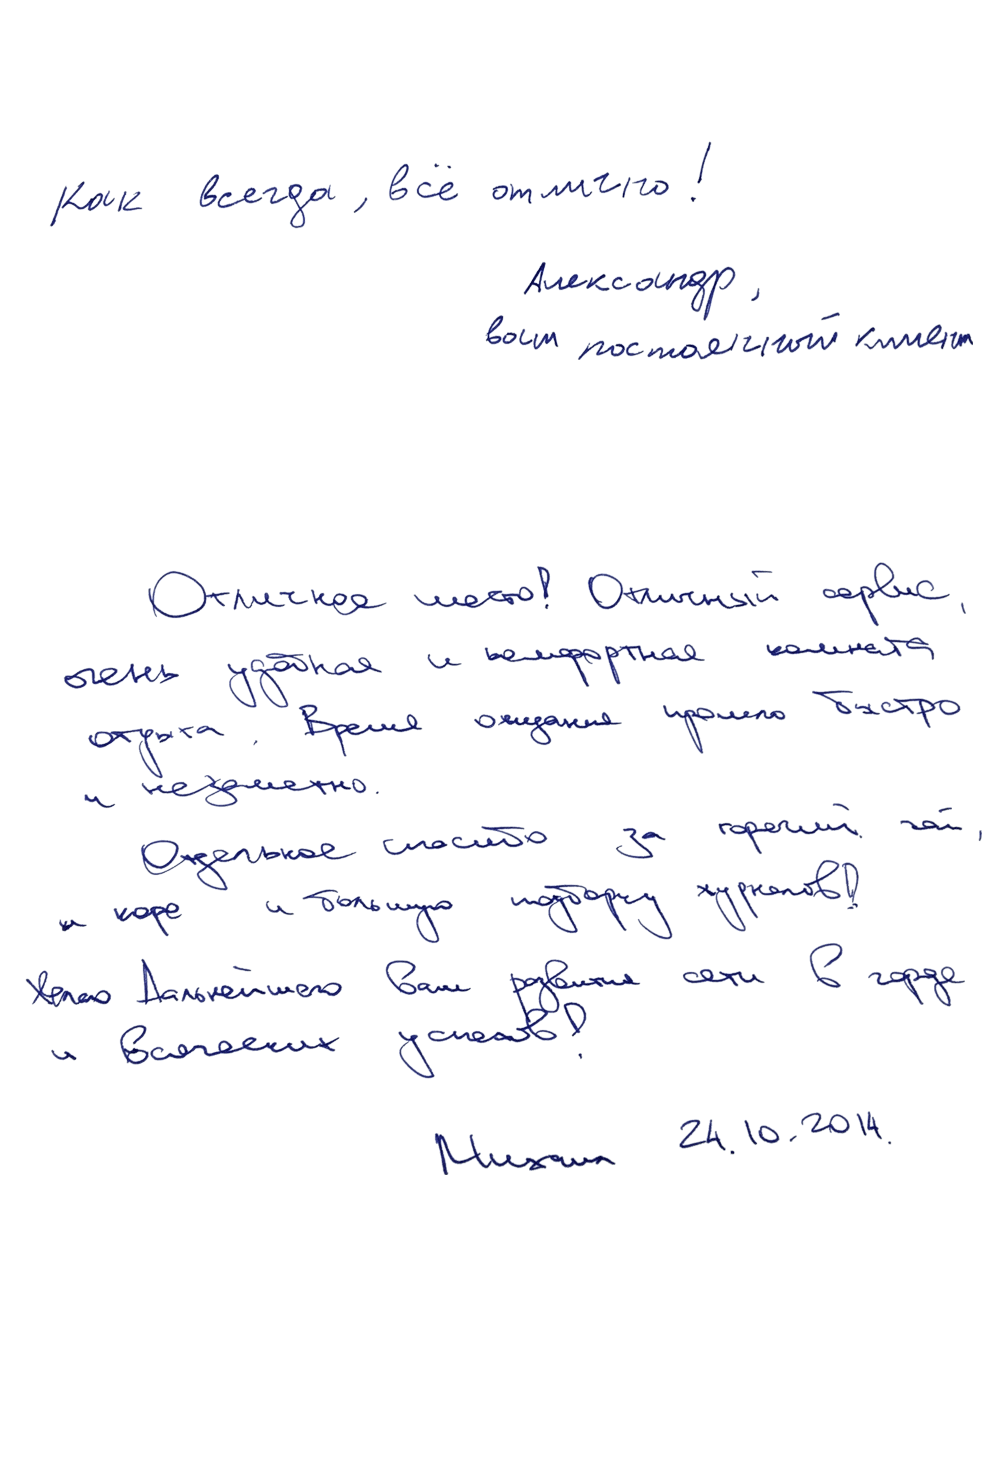 Как всегда, всё отлично!
Александр,
ваш постоянный клиент
Отличное место! Отличный сервис,
очень удобная и комфортная комната
отдыха. Время ожидания прошло быстро
и незаметно.
Отдельное спасибо за горячий чай,
и кофе и большую подборку журналов!
Желаю Дальнейшего Вам развития сети в городе
и Всяческих успехов!
Михаил 24.10.2014.